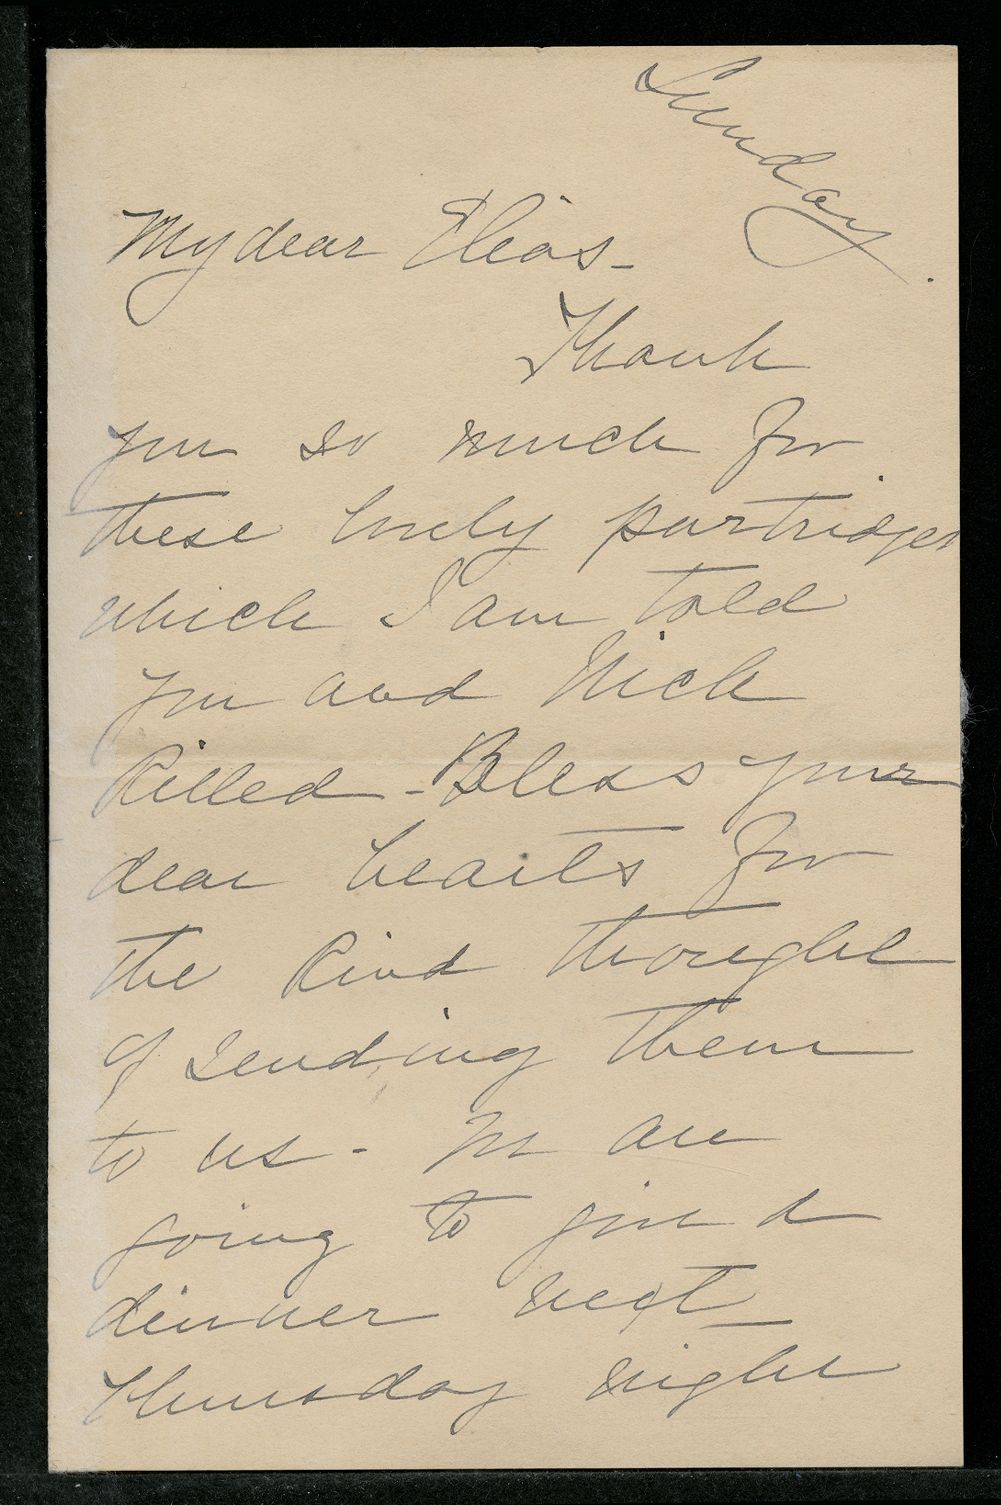 Sunday.
My dear Elias -
Thank
you so much for
these lovely partridges
which I am told
you and Nick
Killed - Bless your
dear hearts for
the Kind thought
of sending them
to us - We are
going to give a
dinner next
Thursday night